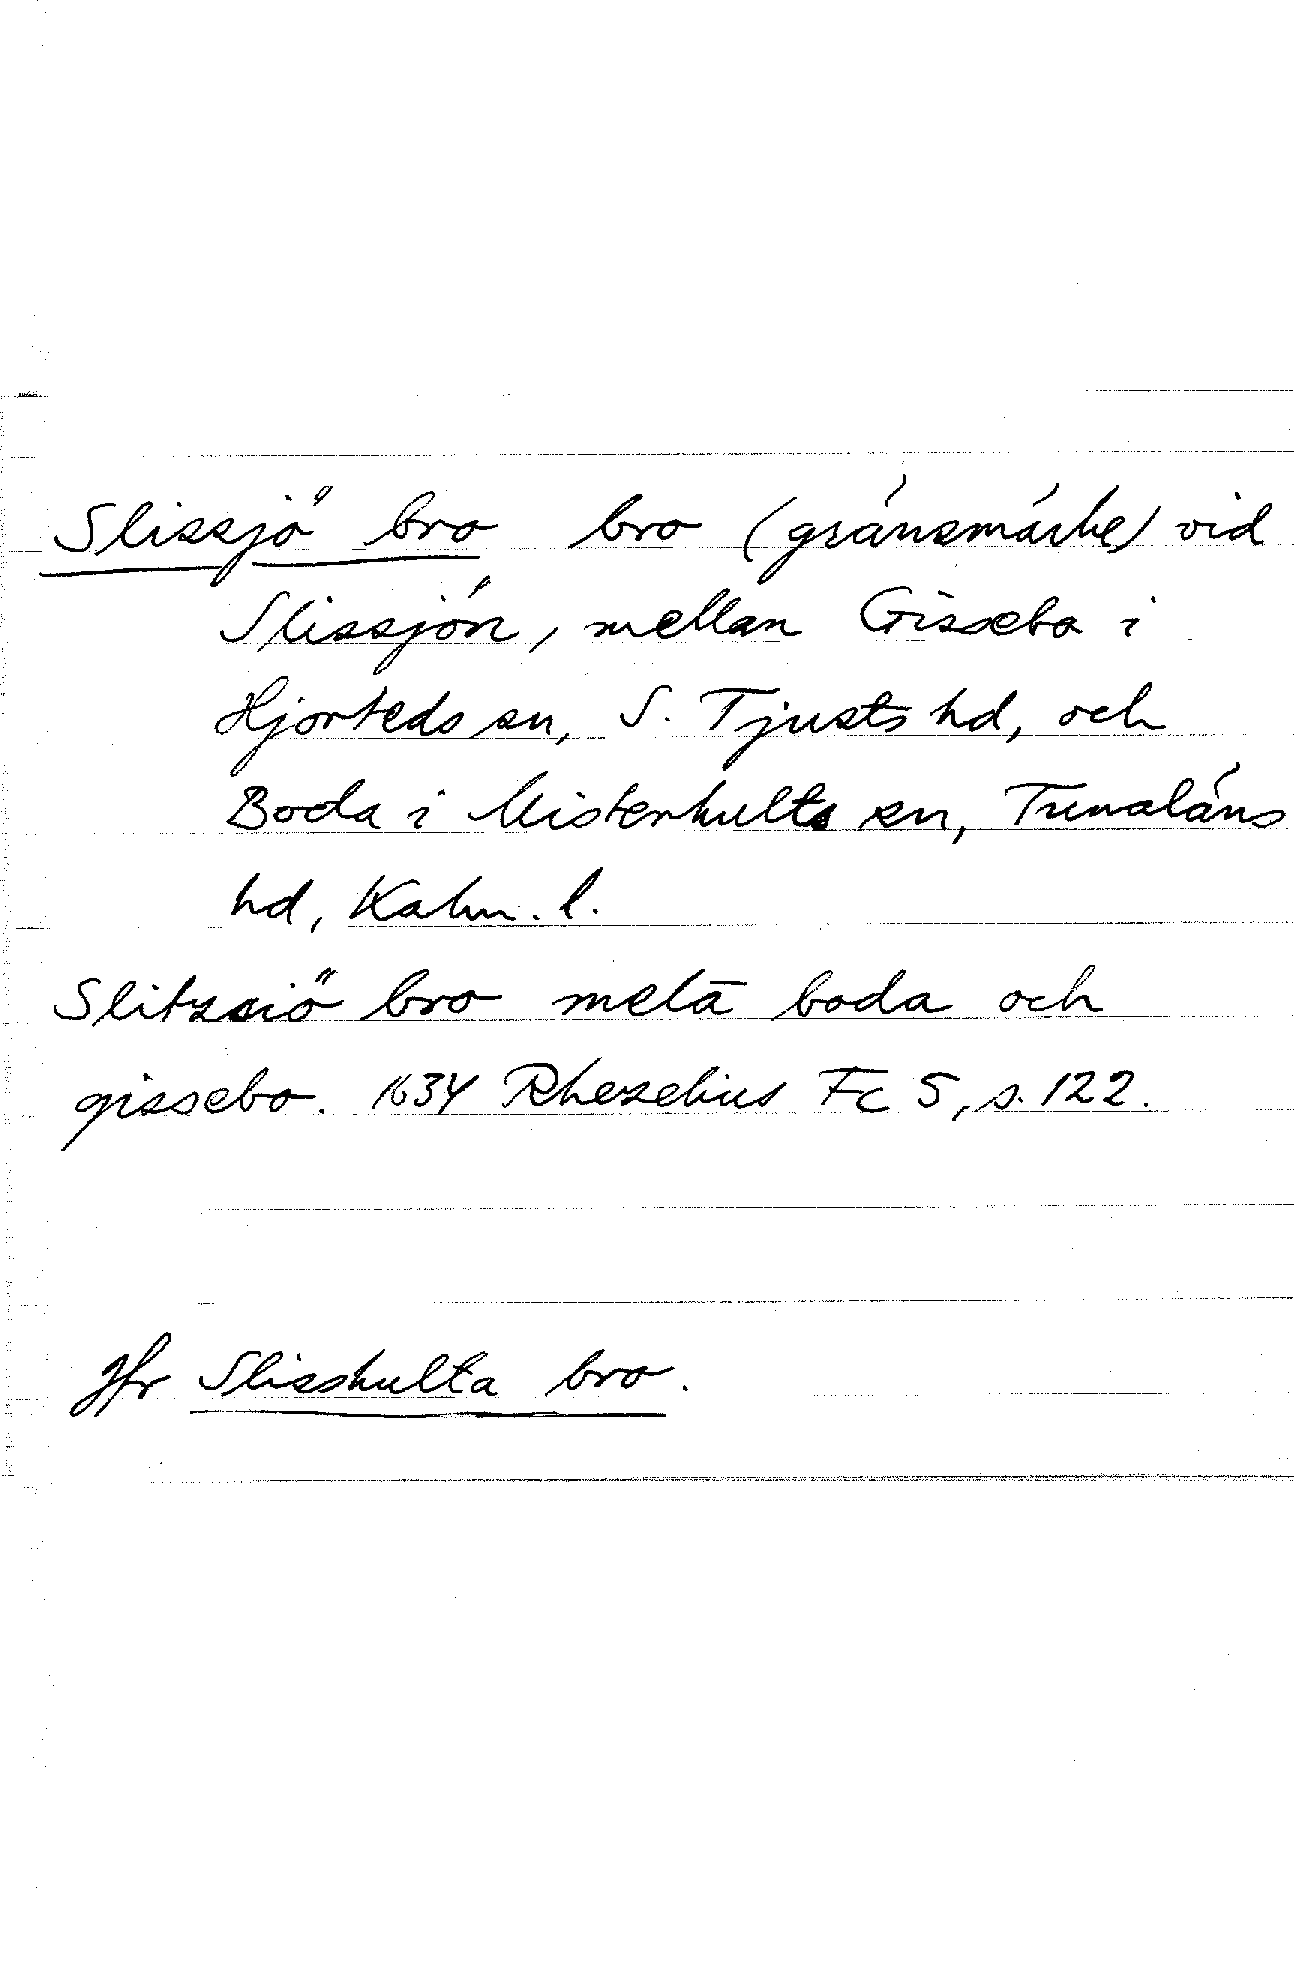 Slissjö bro bro (gränsmärke) vid
Slissjön, mellan Gissebo i
Hjorteds sn, S. Tjusts hd, och
Boda i Misterhults sn, Tunaläns
hd, Kalm. l.
Slitzsiö bro melā boda och
gissebo. 1634 Rhezelius Fc 5, s. 122.
Jfr Slisshulta bro.